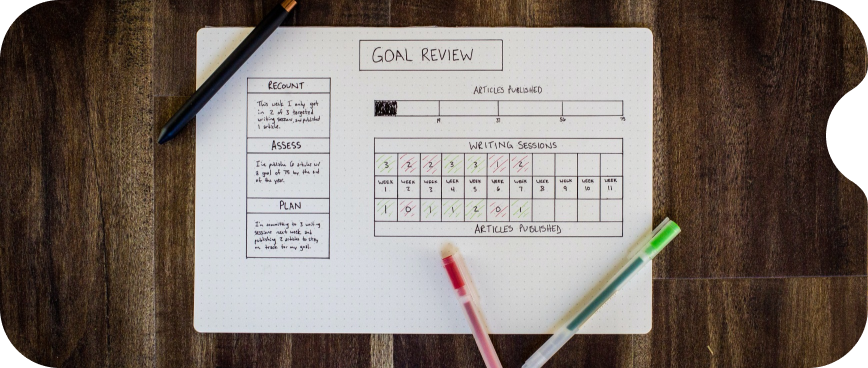 GOAL REVIEW
RECOUNT
This week I only got
in 2 of 3 targeted
writing sessions, and published
1 article.
ASSESS
I've publishe 6 articles w/
a goal of 75 by the end
of the year.
PLAN
I'm committing to 3 writing
sessions next week and
publishing 2 articles to stay
on track for my goal.
ARTICLES PUBLISHED
75
WRITING SESSIONS
3 2 2 3 3 1 2
WEEK WEEK WEEK WEEK WEEK WEEK WEEK WEEK WEEK WEEK WEEK
1 2 3 4 5 6 7 8 9 10 11
1 0 1 1 2 0 1
ARTICLES PUBLISHED